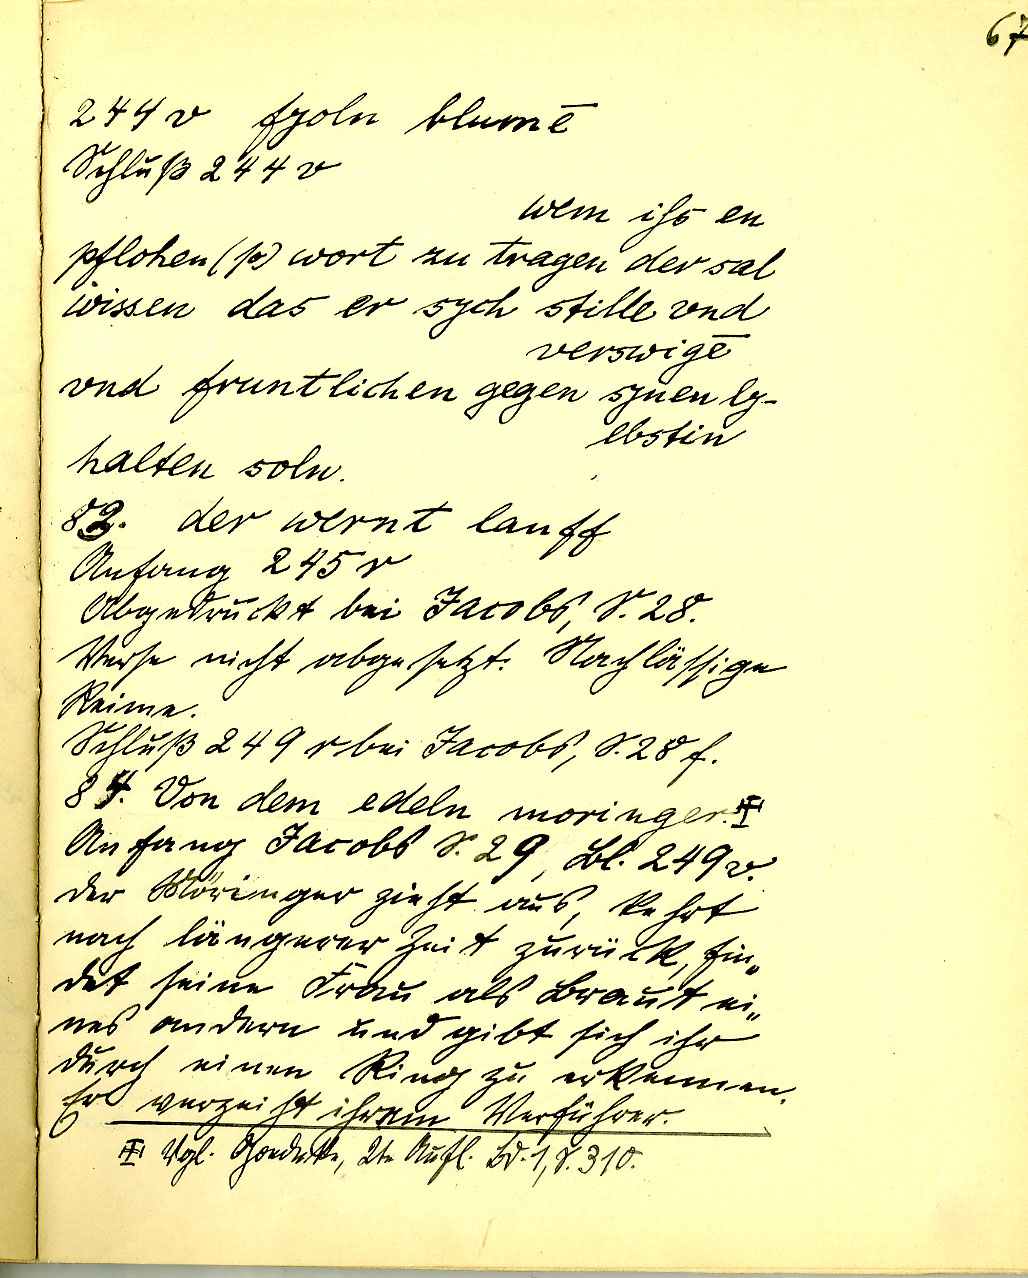 67
244 v fyoln blumē
Schluß 244 v
wem ihs en
pflohen (so) wort zu tragen der sal
wissen das er sych stille vnd
verswigē
vnd fruntlichen gegen synen ly-
ebstin
halten soln.
83. der wernt lauff
Anfang 245 r
Abgedruckt bei Jacobs, S. 28.
Verse nicht abgesetzt. Nachlässige
Reime.
Schluß 249 r bei Jacobs, S. 28 f.
84. Von dem edeln moringer.
Anfang Jacobs S. 29, Bl. 249 v.
der Möringer zieht aus, kehrt
nach längerer Zeit zurück, fin„
det seine Frau als Braut ei„
nes andern und gibt sich ihr
durch einen Ring zu erkennen.
Er verzeiht ihrem Verführer.
Vgl. Goedeke, 2te Aufl. Bd. 1, S. 310.